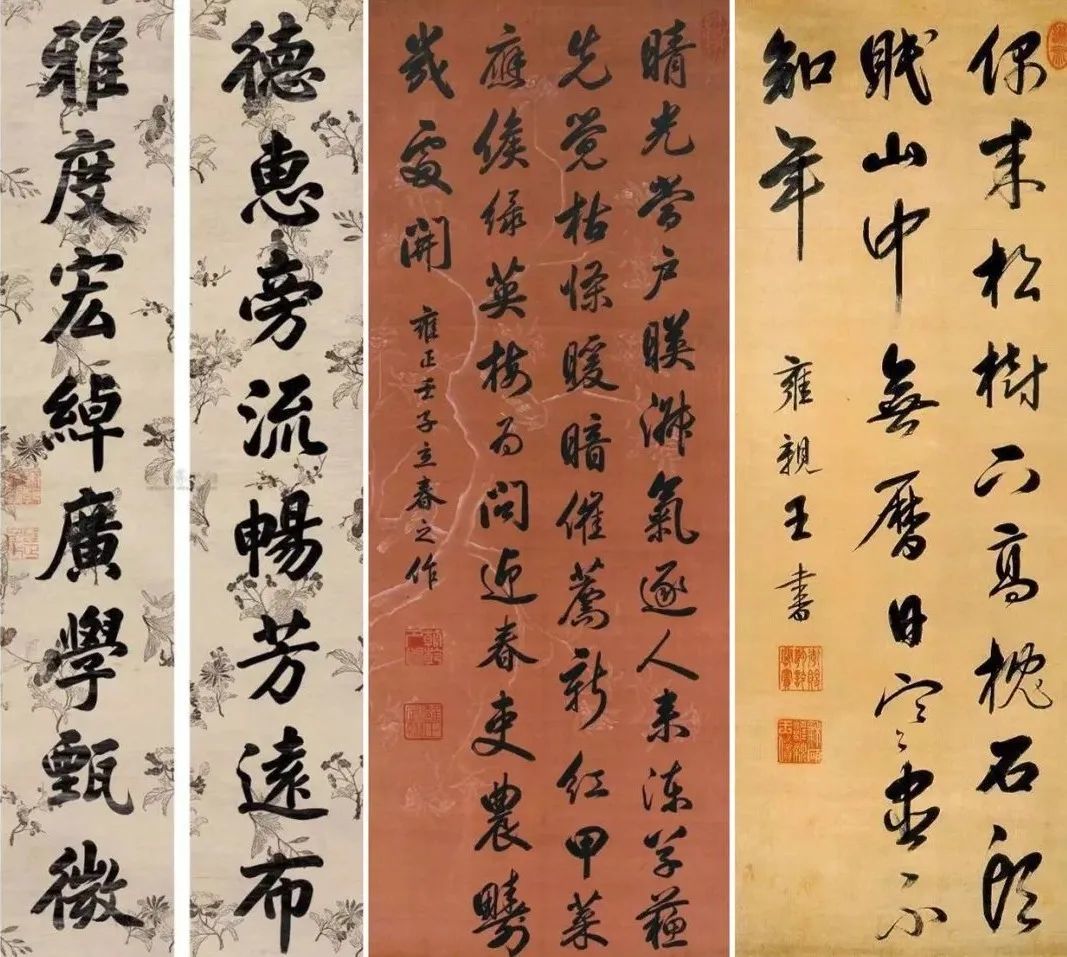 偶来松樹下高枕石頭
眠山中無曆日寒盡不
知年
雍親王書
晴光當户暎淑氣逐人来凍草蘓
先覚枯條暖暗催薦新红甲菜
應候绿英梅为問迎春吏農疇
幾處開
雍正壬子立春之作
德惠旁流暢芳遠布
雅度宏綽廣學甄微